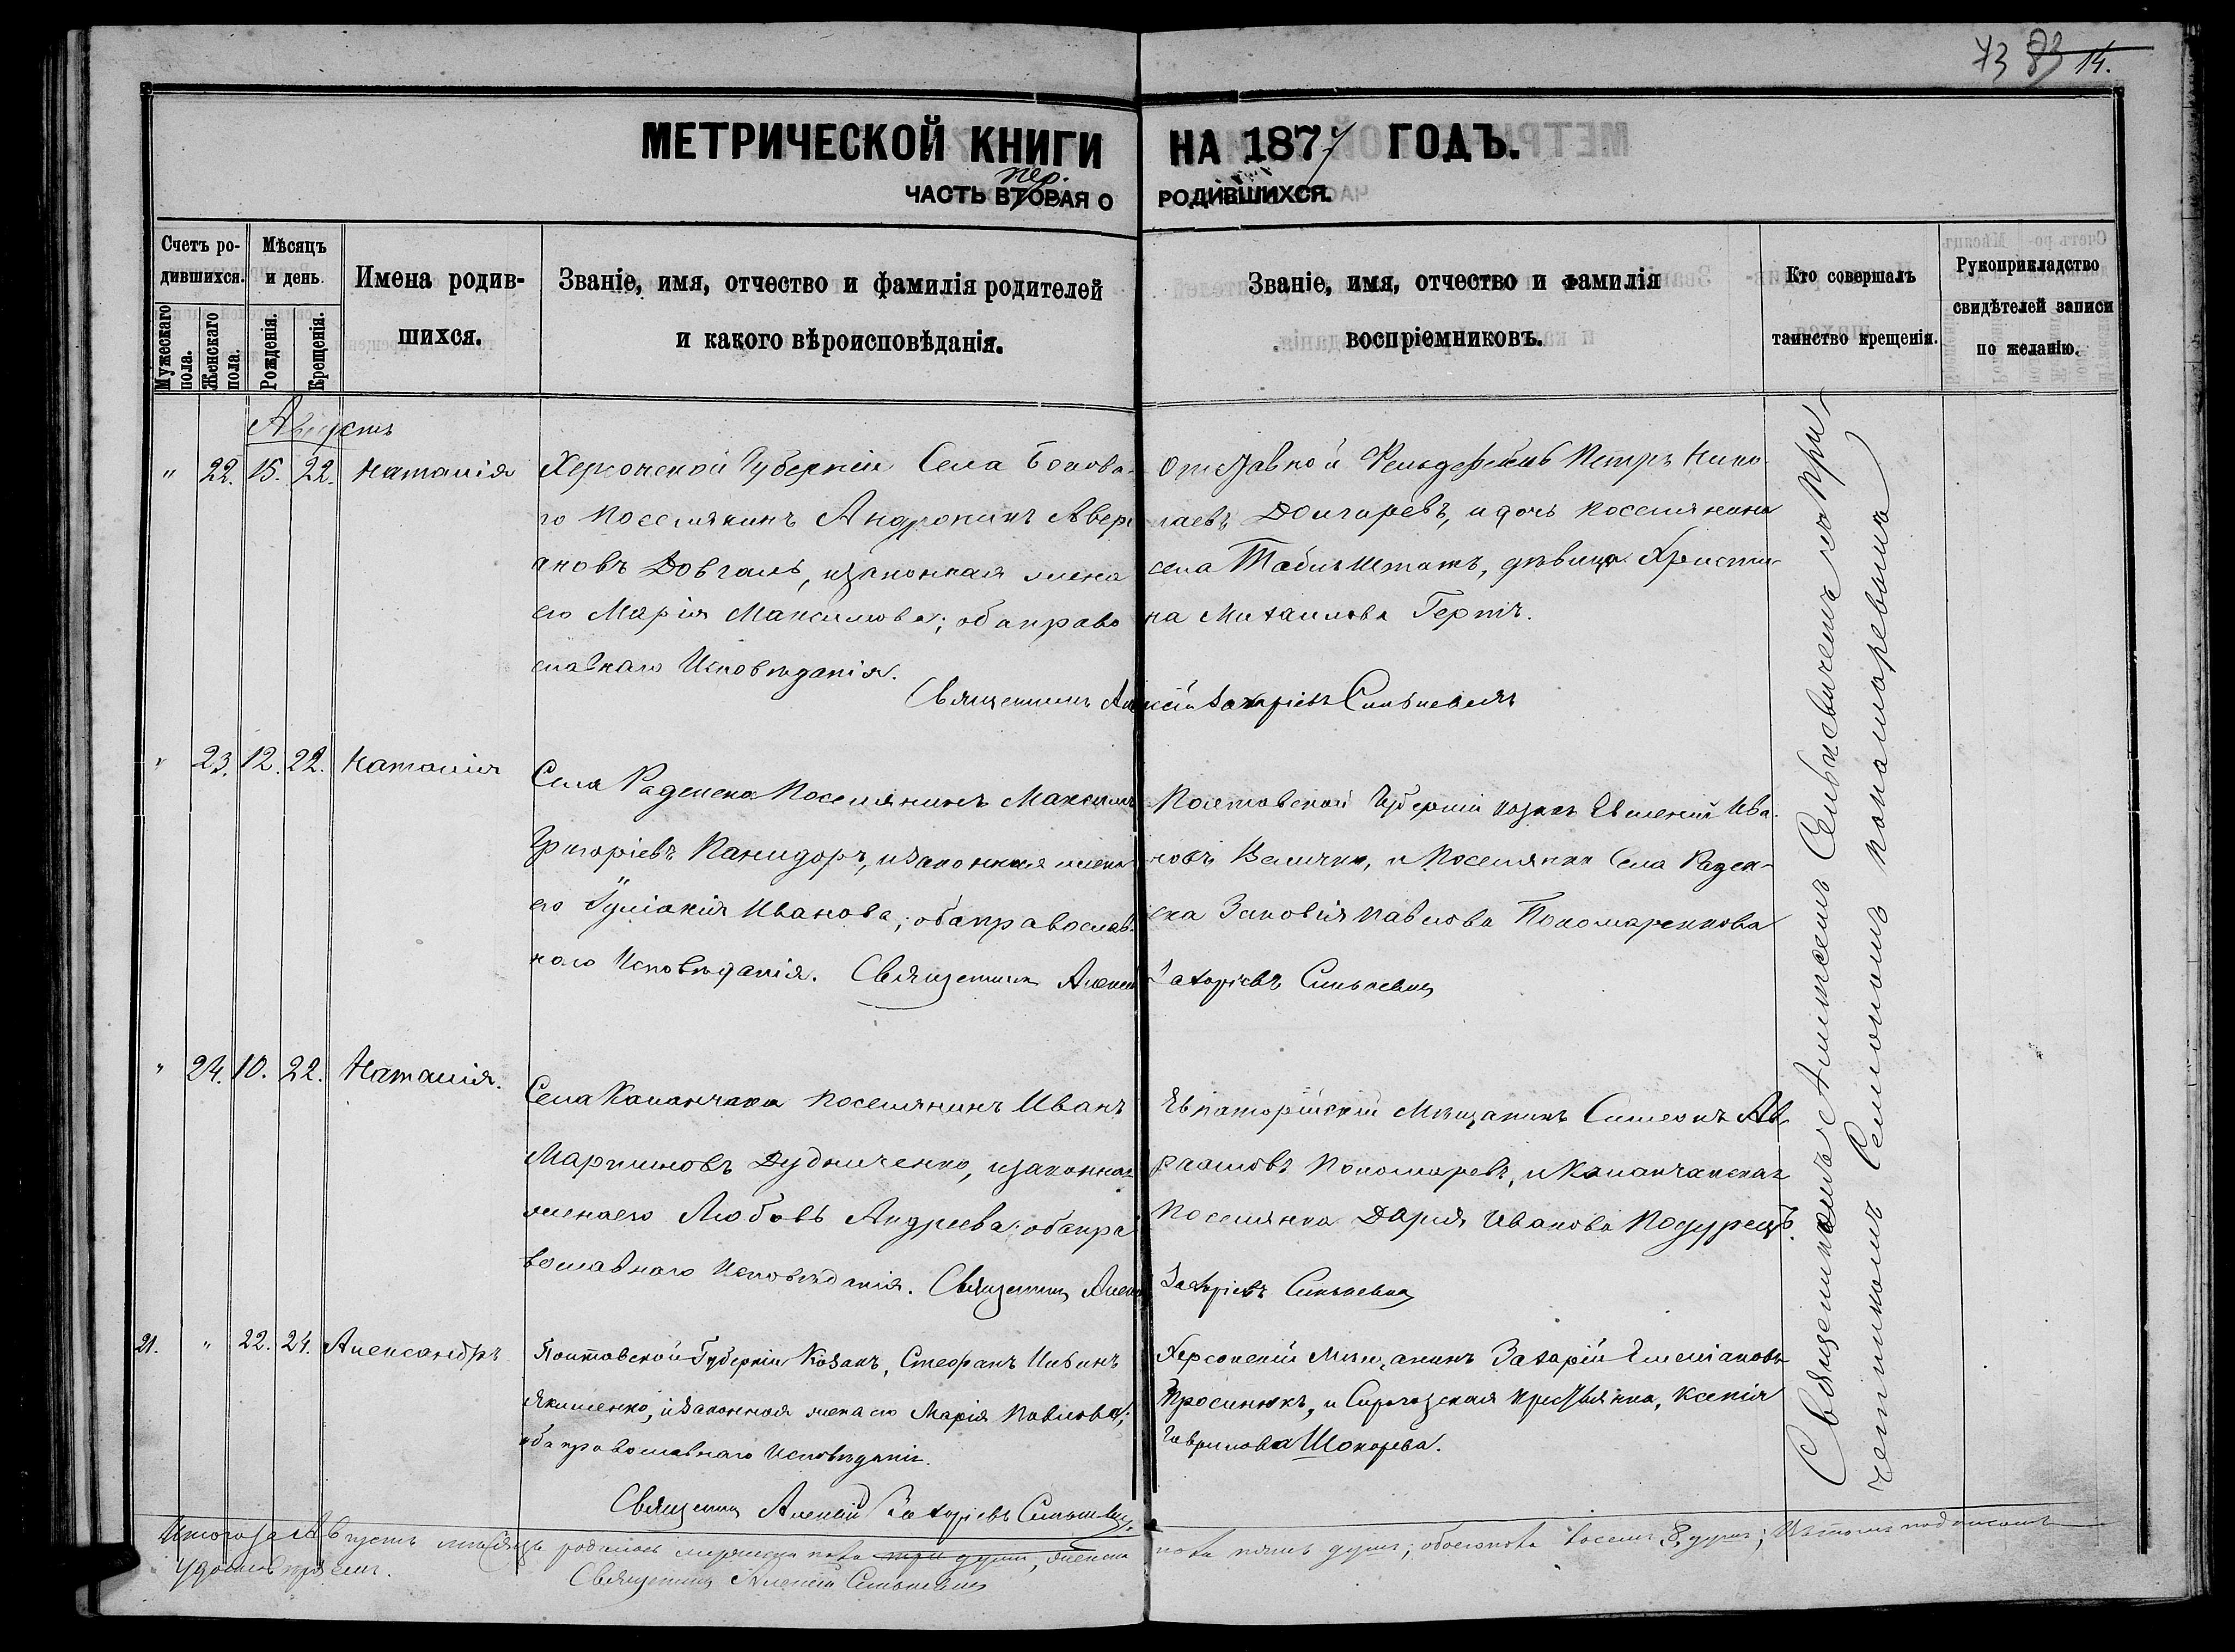 73 83 14.
МЕТРИЧЕСКОЙ КНИГИ НА 1877 ГОДЪ.
пер.
ЧАСТЬ ВТОРАЯ О РОДИВШИХСЯ.
Счетъ родившихся.
Мужескаго пола.
Женскаго пола.
Мѣсяцъ и день.
Рожденія.
Крещенія.
Имена родив-
шихся.
Званіе, имя, отчество и фамилія родителей
и какого вѣроисповѣданія.
Званіе, имя, отчество и фамилія
воспріемниковъ.
Кто совершалъ
таинство крещенія.
Рукоприкладство
свидѣтелей записи
по желанію.
Августъ
" 22. 15. 22. Наталія
Херсонской Губерніи Села Боково-
го Поселянинъ Андроникъ Авер
ановъ Довгаль, изаконная жена
его Марія Максимова; обаправо
славнаго Исповѣданія.
Отставной Фельдфебель Петръ Нико-
лаевъ Долгоревъ, и дочь поселянина
села , дѣвица Христи-
на Михаилова Герпъ.
Священникъ Алексій Захаріевъ Синькевичъ
" 23. 12. 22. Наталія
Села Раденска Поселянинъ Максимъ
Григоріевъ Канидоръ, изаконная жена
его Іуліанія Иванова; обаправослав-
наго Исповѣданія. Священникъ Алексій Захаріевъ Синькевичъ
Полтавской Губерніи козакъ Евменій Ива-
новъ Величко, и Поселянка Села Раден-
ска Зиновія Павлова Пономаренкова
" 24. 10. 22. Наталія.
Села Каланчака поселянинъ Иванъ
Мартиновъ Дудниченко, изаконная
женаего Любовь Андреева; обапра
вославнаго Исповѣданія. Священникъ Алексій Захаріевъ Синькевичъ
Евпаторійскій Мѣщанинъ Симеонъ Ав
раамовъ Пономаревъ, и Каланчакская
поселянка Дарія Иванова Подурецъ.
21. " 22. 24. Александръ
Полтавской Губерніи Козакъ, Стефанъ
Якименко, изаконная жена его Марія Павлова;
оба православнаго Исповѣданія.
Херсонскій Мѣщанинъ Захарій Емеліановъ
Просинюкъ, и Сирогозская крестьянка, Ксенія
Гаврилова Шокорева.
Священникъ Алексій Захаріевъ Синькевичъ.
Священникомъ Алексіемъ Синькевичемъ при
четникомъ Семеономъ Пономаревымъ
Итого за Августъ мѣсяцъ родилось мужеска пола три души, женска пола пять душъ; обоегопола восемь 8, душъ; Въ томъ подписомъ
удостовѣряемъ.
Священникъ Алексій Синькевичъ